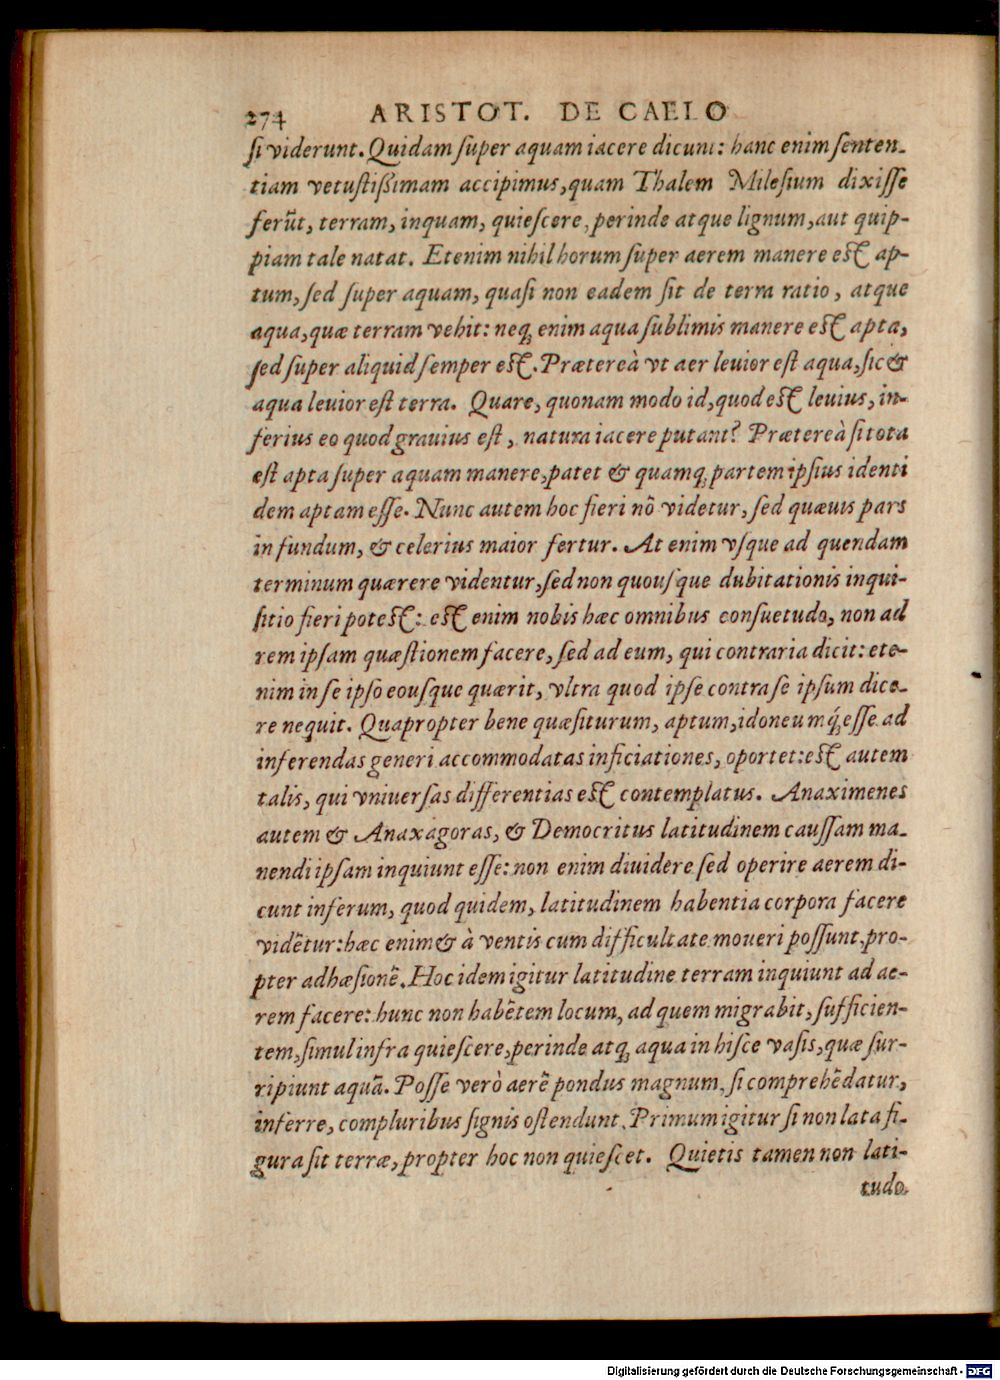 274 ARISTOT. DE CAELO
ſi viderunt. Quidam ſuper aquam iacere dicunt: hanc enim ſenten-
tiam vetuſtißimam accipimus, quam Thalem Mileſium dixiſſe
ferũt, terram, inquam, quieſcere, perinde atque lignum, aut quip-
piam tale natat. Etenim nihil horum ſuper aerem manere eſt ap-
tum, ſed ſuper aquam, quaſi non eadem ſit de terra ratio, atque
aqua, quæ terram vehit: neq; enim aqua ſublimis manere eſt apta,
ſed ſuper aliquid ſemper eſt. Prætereà vt aer leuior eſt aqua, ſic &
aqua leuior eſt terra. Quare, quonam modo id, quod eſt leuius, in-
ferius eo quod grauius eſt, natura iacere putant? Prætereà ſi tota
eſt apta ſuper aquam manere, patet & quamq; partem ipſius identi
dem aptam eſſe. Nunc autem hoc fieri nõ videtur, ſed quæuis pars
in fundum, & celerius maior fertur. At enim vſque ad quendam
terminum quærere videntur, ſed non quouſque dubitationis inqui-
ſitio fieri poteſt: eſt enim nobis hæc omnibus conſuetudo, non ad
rem ipſam quæſtionem facere, ſed ad eum, qui contraria dicit: ete-
nim in ſe ipſo eouſque quærit, vltra quod ipſe contra ſe ipſum dice-
re nequit. Quapropter bene quæſiturum, aptum, idoneumq́; eſſe ad
inferendas generi accommodatas inficiationes, oportet: eſt autem
talis, qui vniuerſas differentias eſt contemplatus. Anaximenes
autem & Anaxagoras, & Democritus latitudinem cauſſam ma-
nendi ipſam inquiunt eſſe: non enim diuidere ſed operire aerem di-
cunt inferum, quod quidem, latitudinem habentia corpora facere
vidẽtur: hæc enim & à ventis cum difficultate moueri poſſunt, pro-
pter adhæſionẽ. Hoc idem igitur latitudine terram inquiunt ad ae-
rem facere: hunc non habẽtem locum, ad quem migrabit, ſufficien-
tem, ſimul infra quieſcere, perinde atq; aqua in hiſce vaſis, quæ ſur-
ripiunt aquã. Poſſe verò aerẽ pondus magnum, ſi comprehẽdatur,
inferre, compluribus ſignis oſtendunt. Primum igitur ſi non lata fi-
gura ſit terræ, propter hoc non quieſcet. Quietis tamen non lati-
tudo
Digitalisierung gefördert durch die Deutsche Forschungsgemeinschaft - DFG